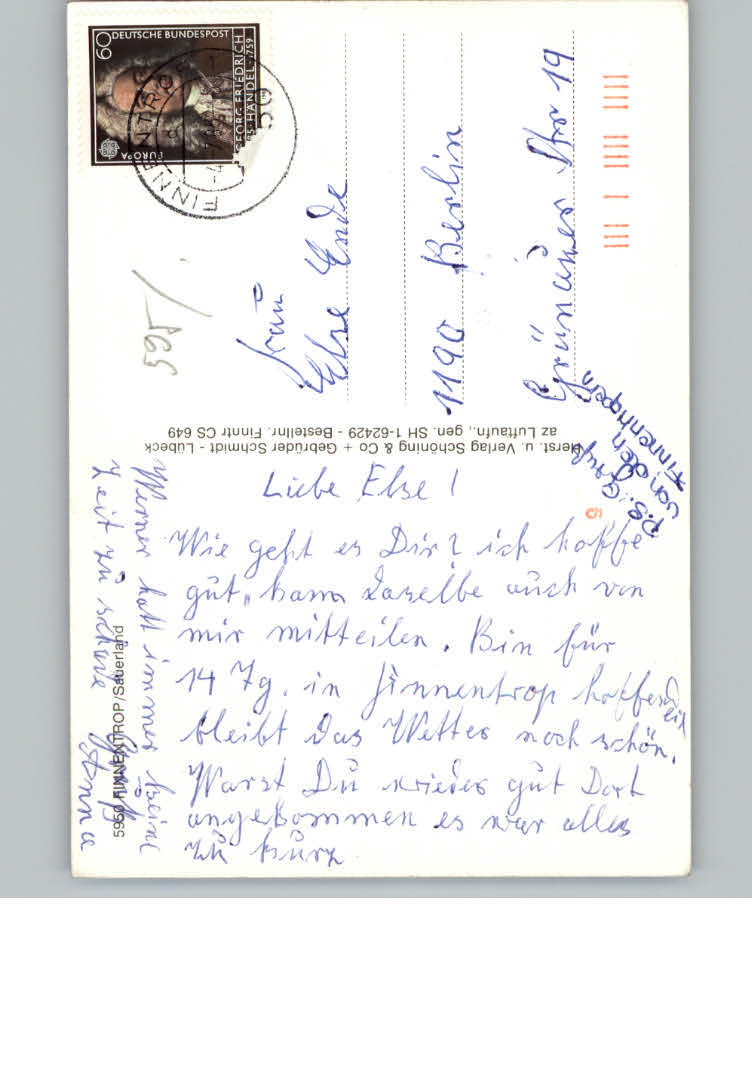 Liebe Else!
Wie geht es Dir? ich hoffe
gut, kann daselbe auch von
mir mitteilen. Bin für
14 Tg. in Finnentrop hoffendlich
bleibt das Wetter noch schön.
Warst Du wieder gut Dort
angekommen es war alles
zu kurz
Werner hatt immer keine
Zeit zu schade
Gruß
Anna
P.S. Gruß
von den
Finnentropern
Frau
Else Ende
1190 Berlin
Grünauer Str 19
595
DEUTSCHE BUNDESPOST
60
GEORG FRIEDRICH
HÄNDEL
EUROPA
FINNENTROP
Herst. u. Verlag Schöning & Co + Gebrüder Schmidt - Lübeck
az Luftaufn., gen. SH 1-62429 - Bestellnr. Finntr CS 649
5950 FINNENTROP/Sauerland